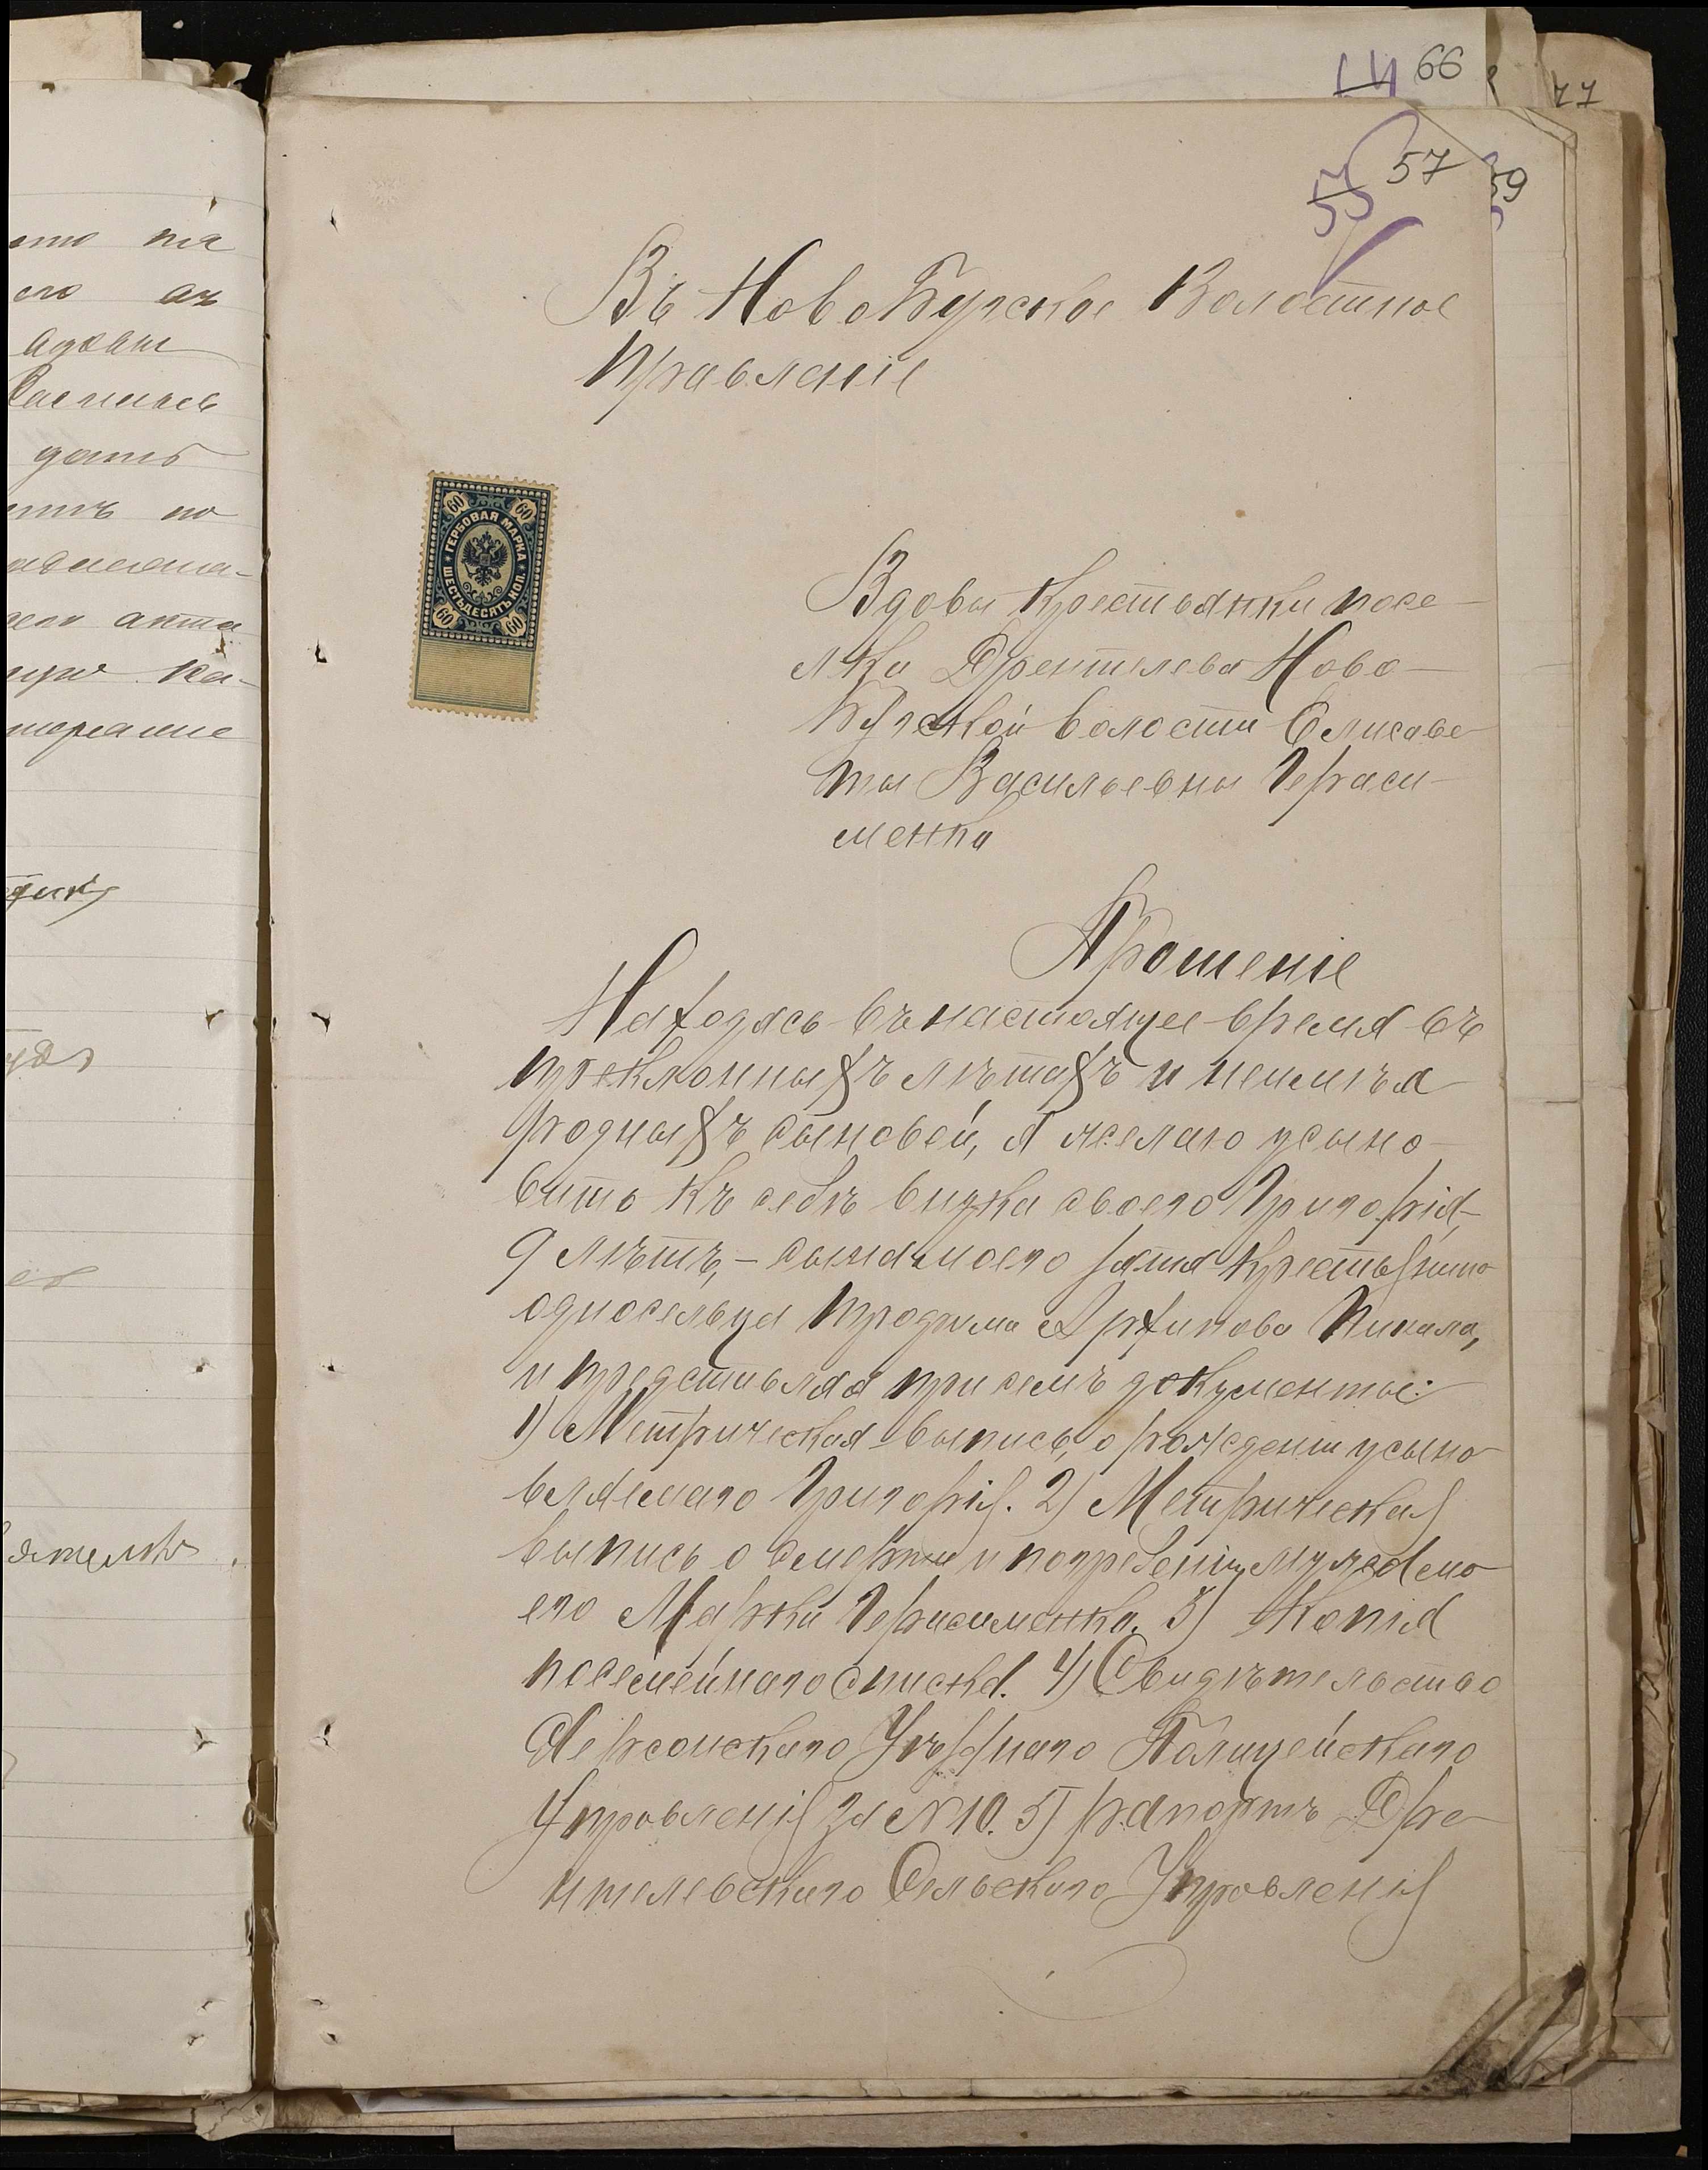 66
77
57
59
55
Въ НовоБугское Волостное
Правленіе
60 60
ГЕРБОВАЯ МАРКА
ШЕСТЬДЕСЯТЪ КОП.
60 60
Вдовы крестьянки посе-
лка Дрентелева Ново-
Бугской волости Елисаве
ты Васильевны Гераси-
менко
Прошеніе
Находясь въ настоящее время въ
преклонныхъ лѣтахъ и неимѣя
родныхъ сыновей, я желаю усыно-
вить къ себѣ внука своего Григорія,
9 лѣтъ, - сына моего зятя крестьянина
односельца Трофима Архипова Пикала,
и представляя при семъ документы:
1) Метрическая выпись, о рожденіи усыно-
вляемаго Григорія. 2) Метрическая
выпись о смерти и погребеніи мужа мо-
его Марка Герасименко. 3) Копія
посемейнаго списка. 4) Свидѣтельство
Херсонскаго Уѣзднаго Полицейскаго
Управленія за № 10. 5) рапортъ Дре-
нтелевскаго Сельскаго Управленія